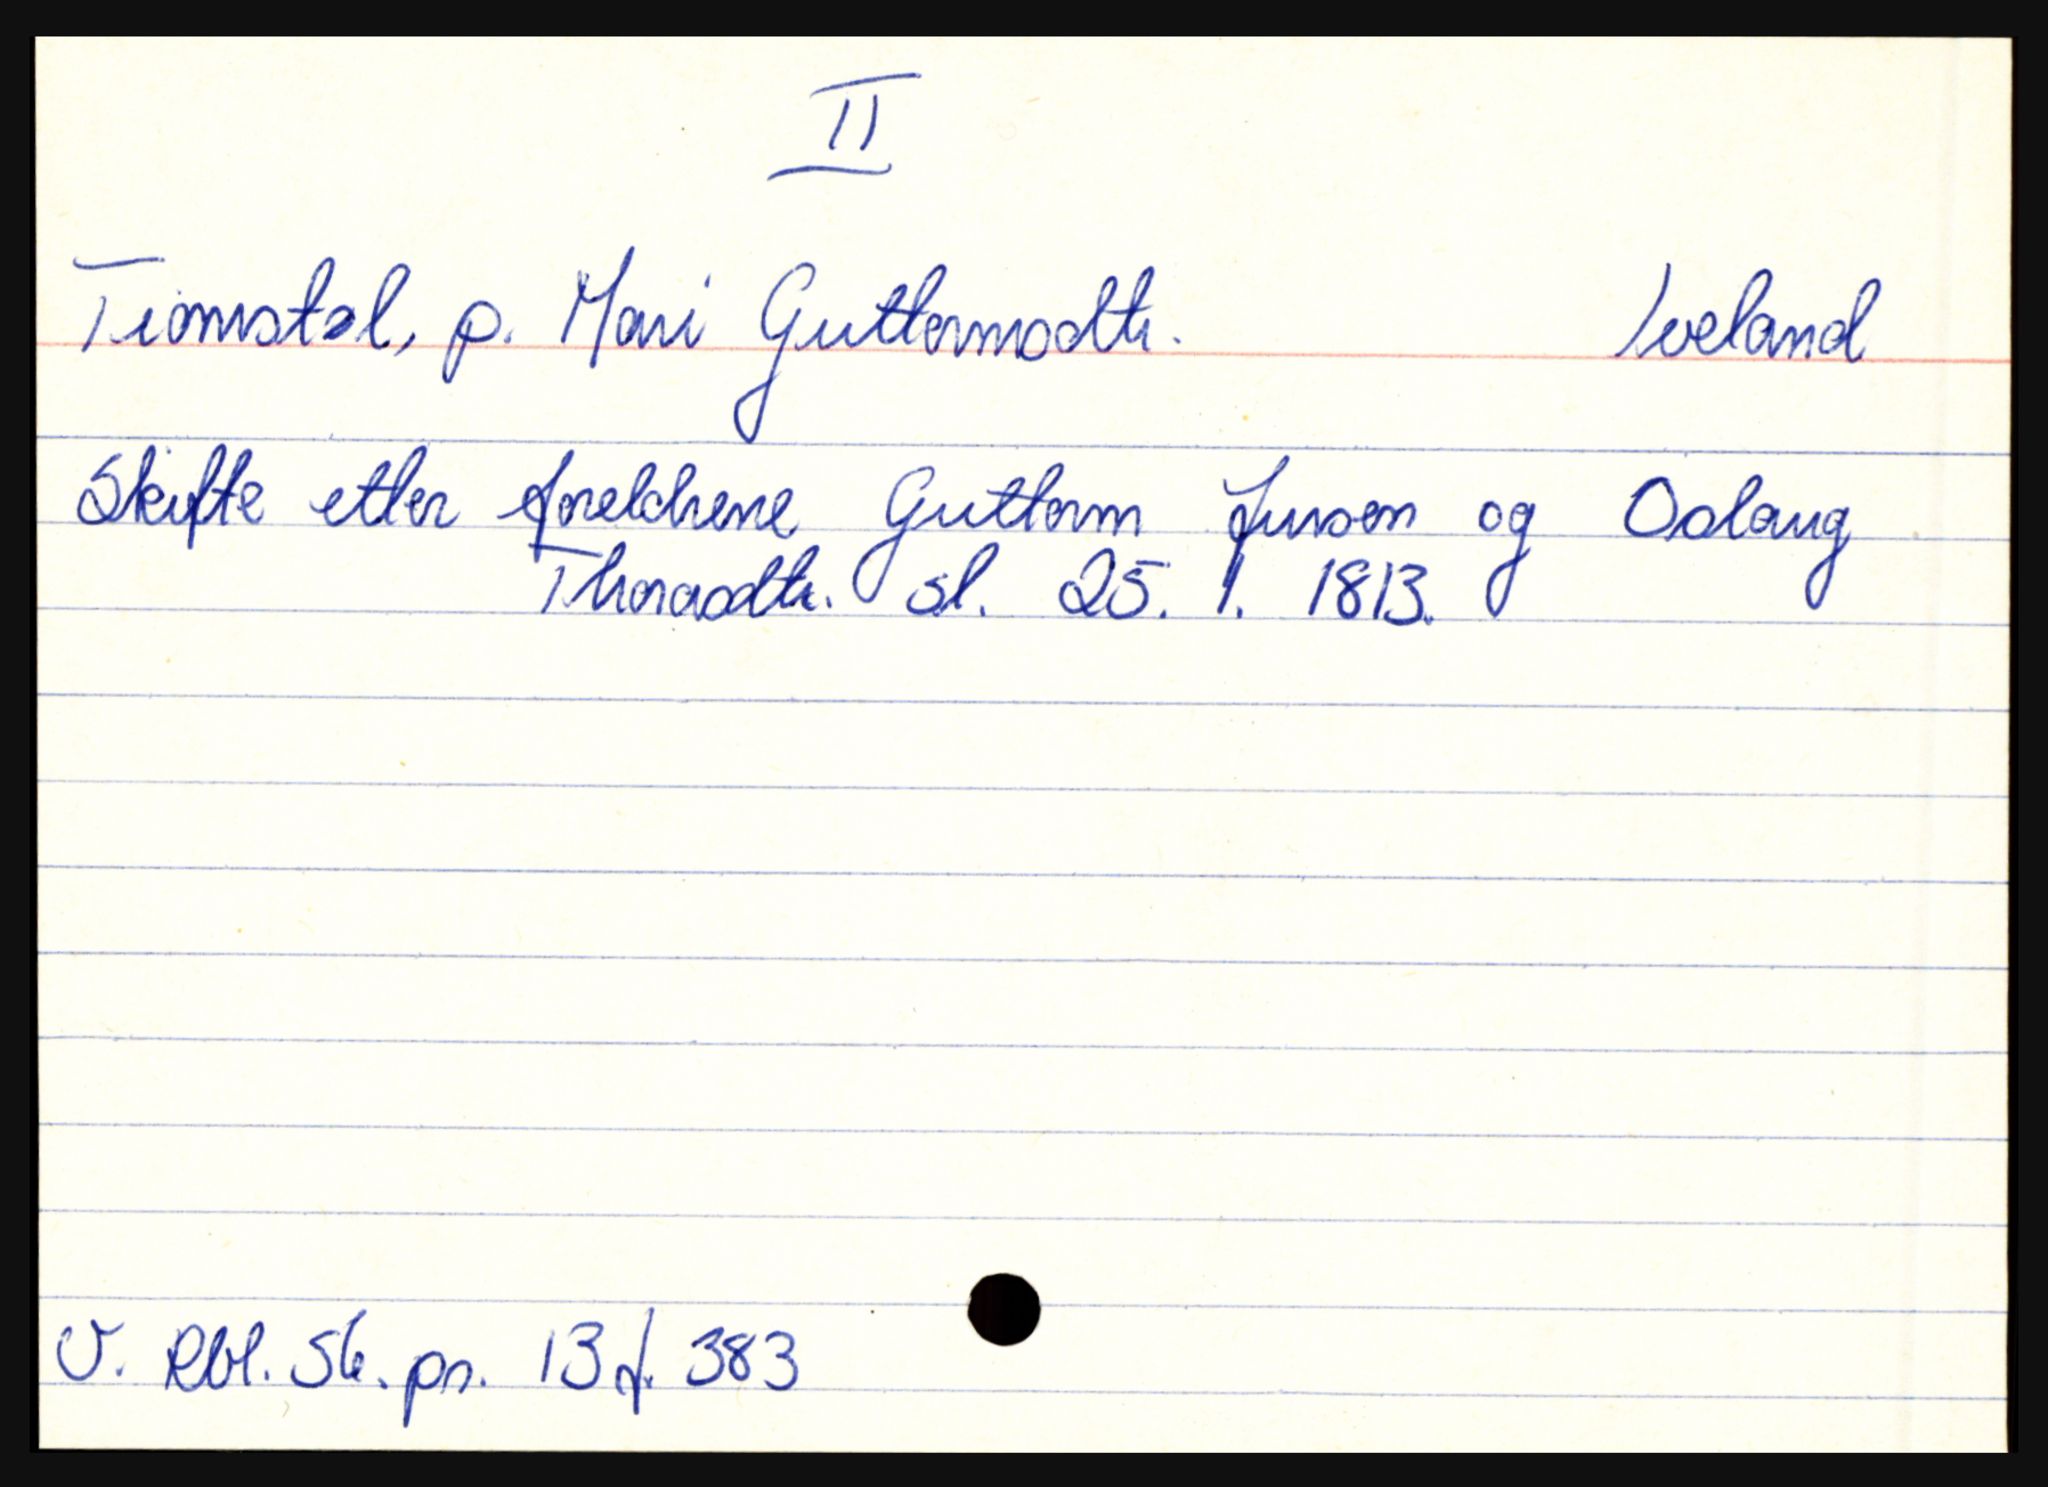 II
Tiomstøl, p. Mari Guttormsdtr. Iveland
Skifte etter foreldrene Guttorm Jurson og Oslaug
Thorasdtr. sl. 25. 1. 1813.
V. Rbl. Sk. pr. 13 f. 383